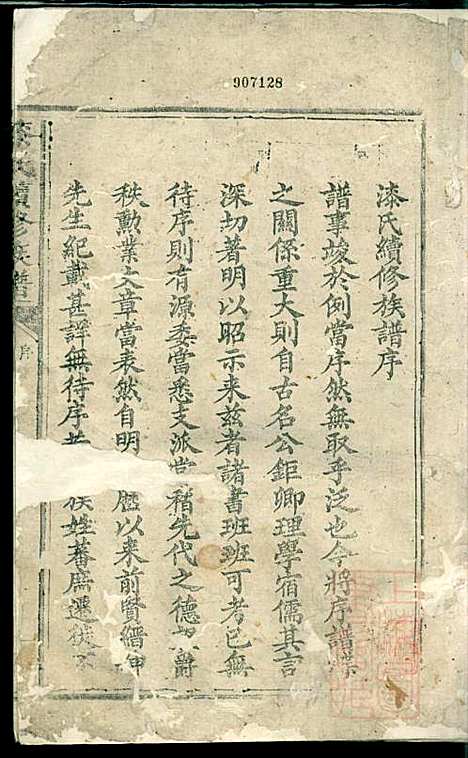 907128
漆氏續修族譜序
譜事竣於例當序然無取乎泛也今將序譜
之關係重大則自古名公鉅卿理學宿儒其言
深切著明以昭示来兹者諸書班班可考已無
待序則有源委當悉支派當稽先代之德
秩勳業文章當表然自明 歴以来前賢縉紳
先生紀載甚詳無待序 族姓蕃庶遷徙
續修族譜
序